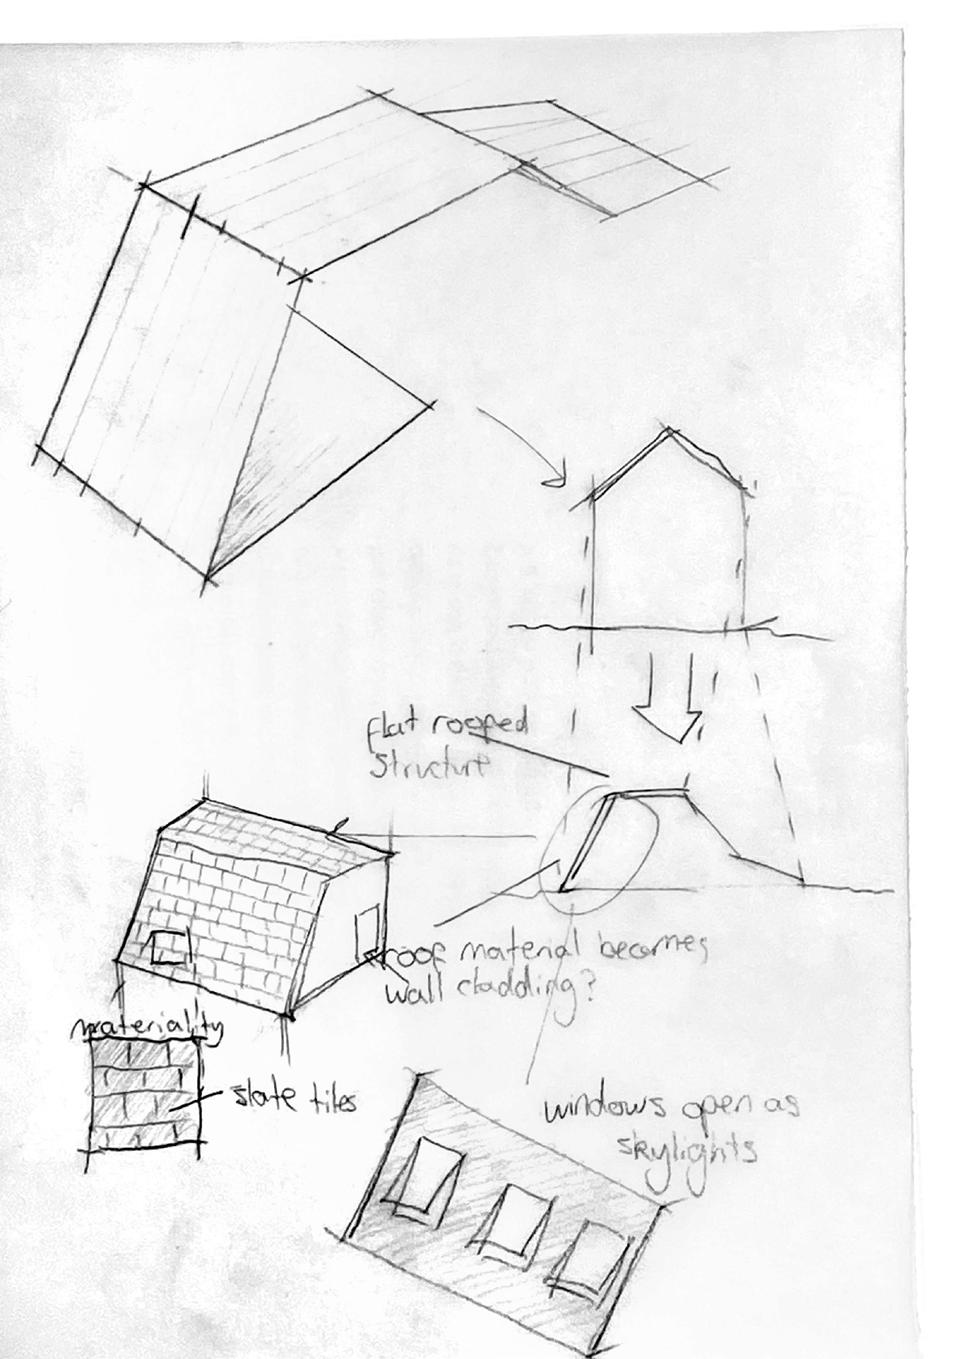 flat roofed
structure
roof material becomes
wall cladding?
materiality
slate tiles
windows open as
skylights